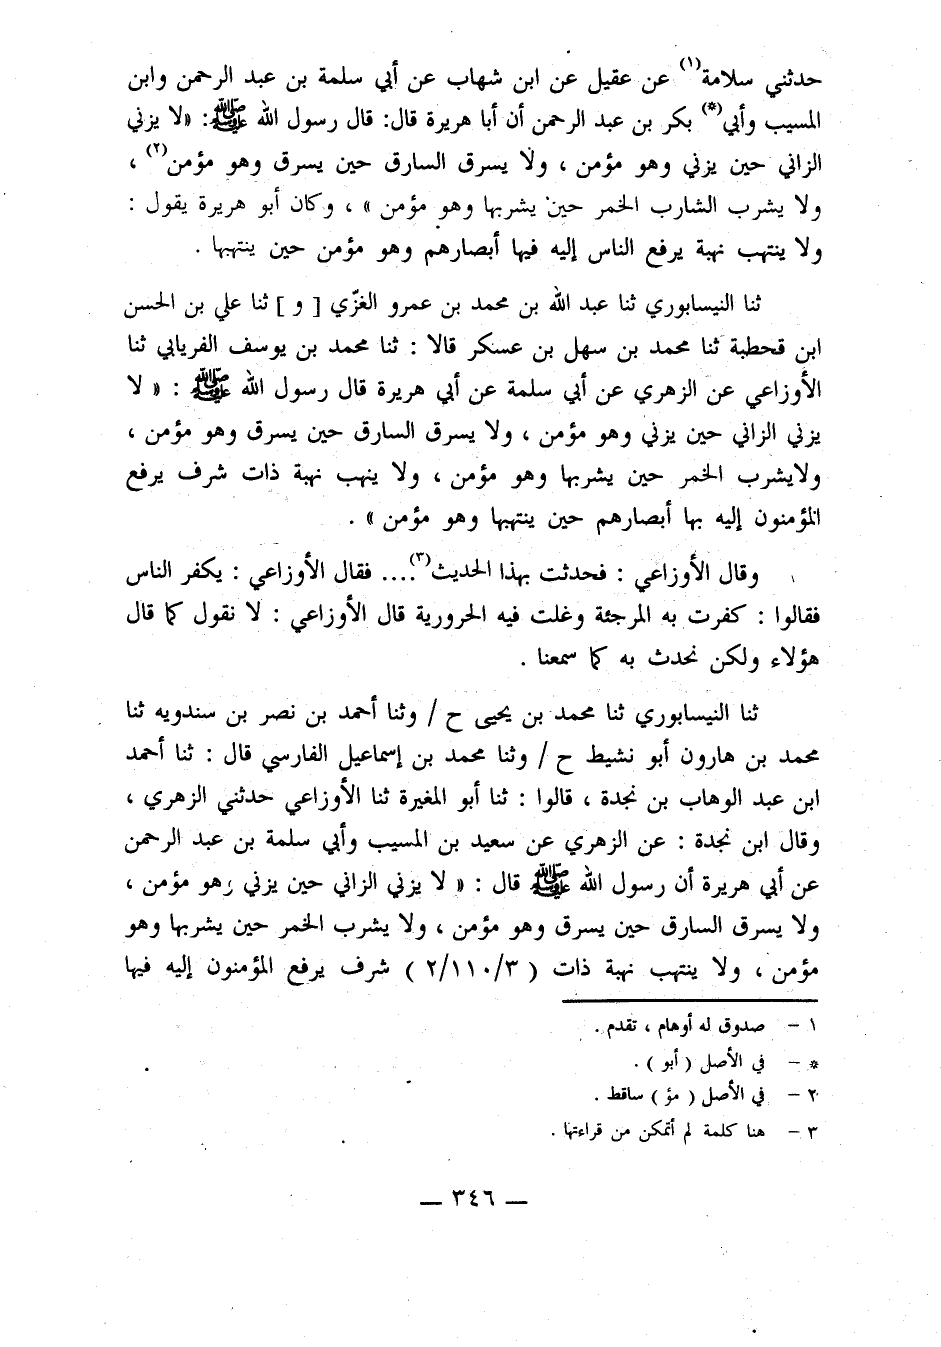 حدثني سلامة(١) عن عقيل عن ابن شهاب عن أبي سلمة بن عبد الرحمن وابن
المسيب وأبي(*) بكر بن عبد الرحمن أن أبا هريرة قال: قال رسول الله ﷺ: «لا يزني
الزاني حين يزني وهو مؤمن ، ولا يسرق السارق حين يسرق وهو مؤمن(٢) ،
ولا يشرب الشارب الخمر حين يشربها وهو مؤمن » ، وكان أبو هريرة يقول :
ولا ينتهب نهبة يرفع الناس إليه فيها أبصارهم وهو مؤمن حين ينتهبها .
ثنا النيسابوري ثنا عبد الله بن محمد بن عمرو الغزّي [ و ] ثنا علي بن الحسن
ابن قحطبة ثنا محمد بن سهل بن عسكر قالا : ثنا محمد بن يوسف الفريابي ثنا
الأوزاعي عن الزهري عن أبي سلمة عن أبي هريرة قال رسول الله ﷺ : « لا
يزني الزاني حين يزني وهو مؤمن ، ولا يسرق السارق حين يسرق وهو مؤمن ،
ولايشرب الخمر حين يشربها وهو مؤمن ، ولا ينهب نهبة ذات شرف يرفع
المؤمنون إليه بها أبصارهم حين ينتهبها وهو مؤمن » .
وقال الأوزاعي : فحدثت بهذا الحديث(٣).... فقال الأوزاعي : يكفر الناس
فقالوا : كفرت به المرجئة وغلت فيه الحرورية قال الأوزاعي : لا نقول كما قال
هؤلاء ولكن نحدث به كما سمعنا .
ثنا النيسابوري ثنا محمد بن يحيى ح / وثنا أحمد بن نصر بن سندويه ثنا
محمد بن هارون أبو نشيط ح / وثنا محمد بن إسماعيل الفارسي قال : ثنا أحمد
ابن عبد الوهاب بن نجدة ، قالوا : ثنا أبو المغيرة ثنا الأوزاعي حدثني الزهري ،
وقال ابن نجدة : عن الزهري عن سعيد بن المسيب وأبي سلمة بن عبد الرحمن
عن أبي هريرة أن رسول الله ﷺ قال : « لا يزني الزاني حين يزني وهو مؤمن ،
ولا يسرق السارق حين يسرق وهو مؤمن ، ولا يشرب الخمر حين يشربها وهو
مؤمن ، ولا ينتهب نهبة ذات ( ٢/١١٠/٣ ) شرف يرفع المؤمنون إليه فيها
١ - صدوق له أوهام ، تقدم .
* - في الأصل ( أبو ) .
٢ - في الأصل ( مؤ ) ساقط .
٣ - هنا كلمة لم أتمكن من قراءتها .
— ٣٤٦ —